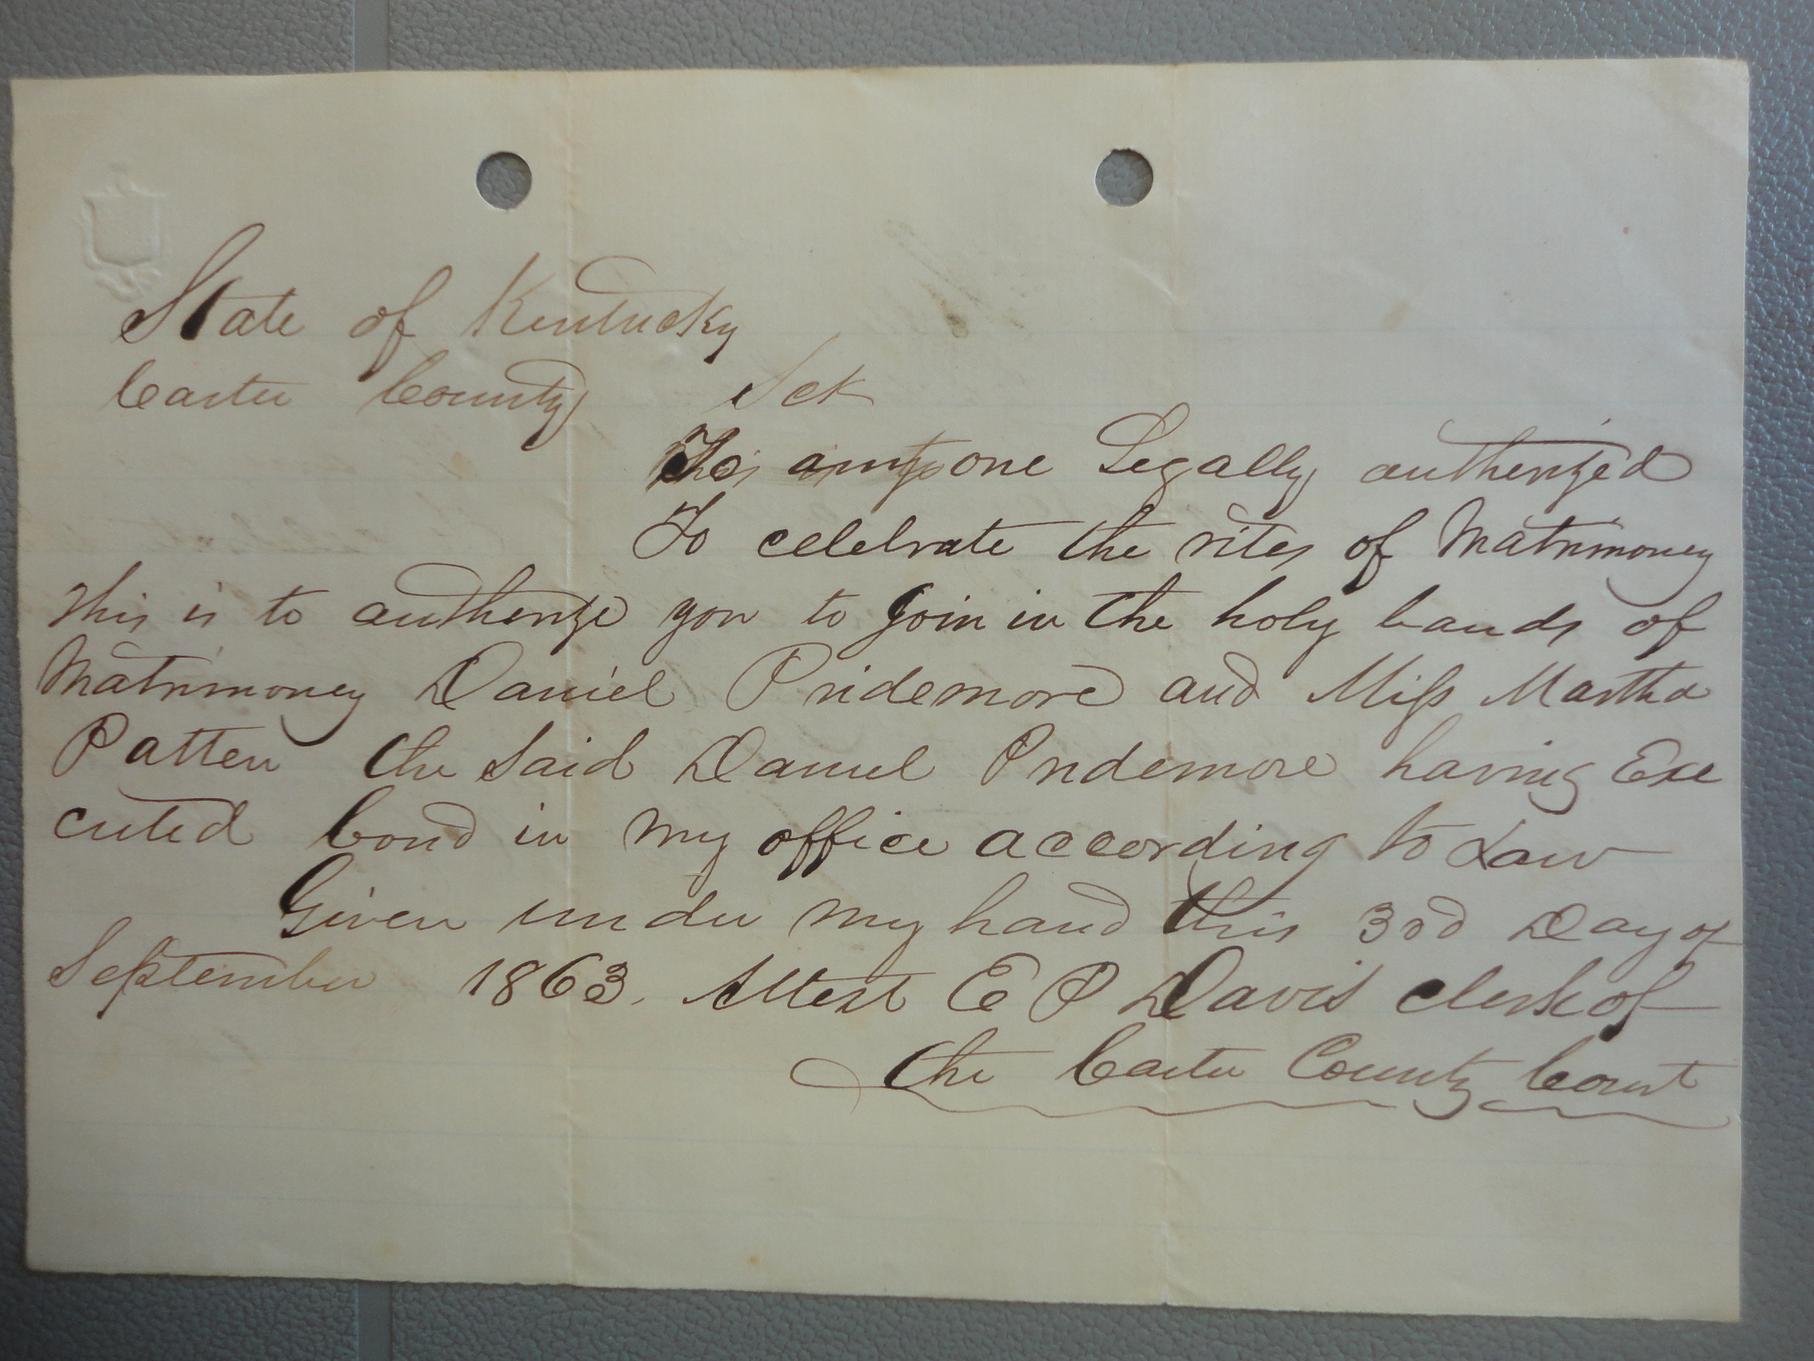 State of Kentucky
Carter County Sct
To any one Legally authorized
To celebrate the rites of Matrimoney
This is to authorize you to Join in the holy bands of
Matrimoney Daniel Pridemore and Miss Martha
Patten the Said Daniel Pridemore having Exe
cuted bond in my office according to Law
Given under my hand this 3rd Day of
September 1863. Attest E P Davis clerk of
the Carter County Court